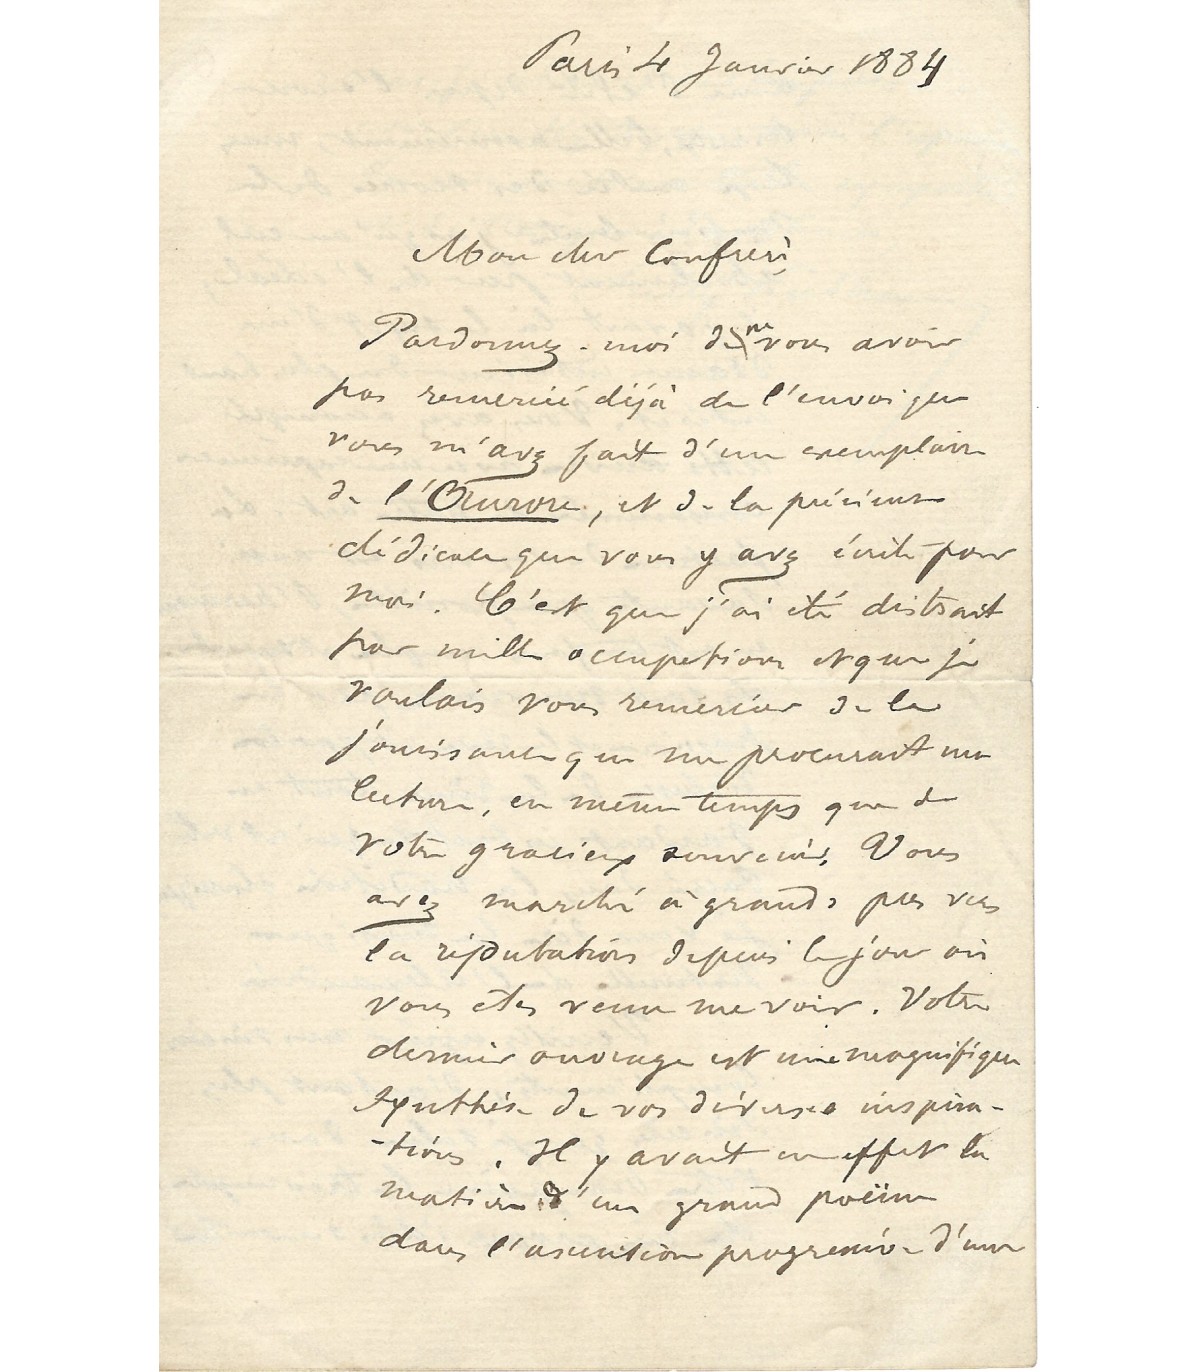 Paris 4 Janvier 1884
Mon cher Confrère,
Pardonnez-moi de ne vous avoir
pas remercié déjà de l'envoi que
vous m'avez fait d'un exemplaire
de l'Aurore, et de la précieuse
dédicace que vous y avez écrite pour
moi. C'est que j'ai été distrait
par mille occupations et que je
voulais vous remercier de la
jouissance que me procurait ma
lecture, en même temps que de
votre gracieux souvenir. Vous
avez marché à grands pas vers
la réputation depuis le jour où
vous êtes venu me voir. Votre
dernier ouvrage est une magnifique
synthèse de vos diverses inspira-
-tions. Il y avait en effet la
matière d'un grand poëme
dans l'ascension progressive d'une